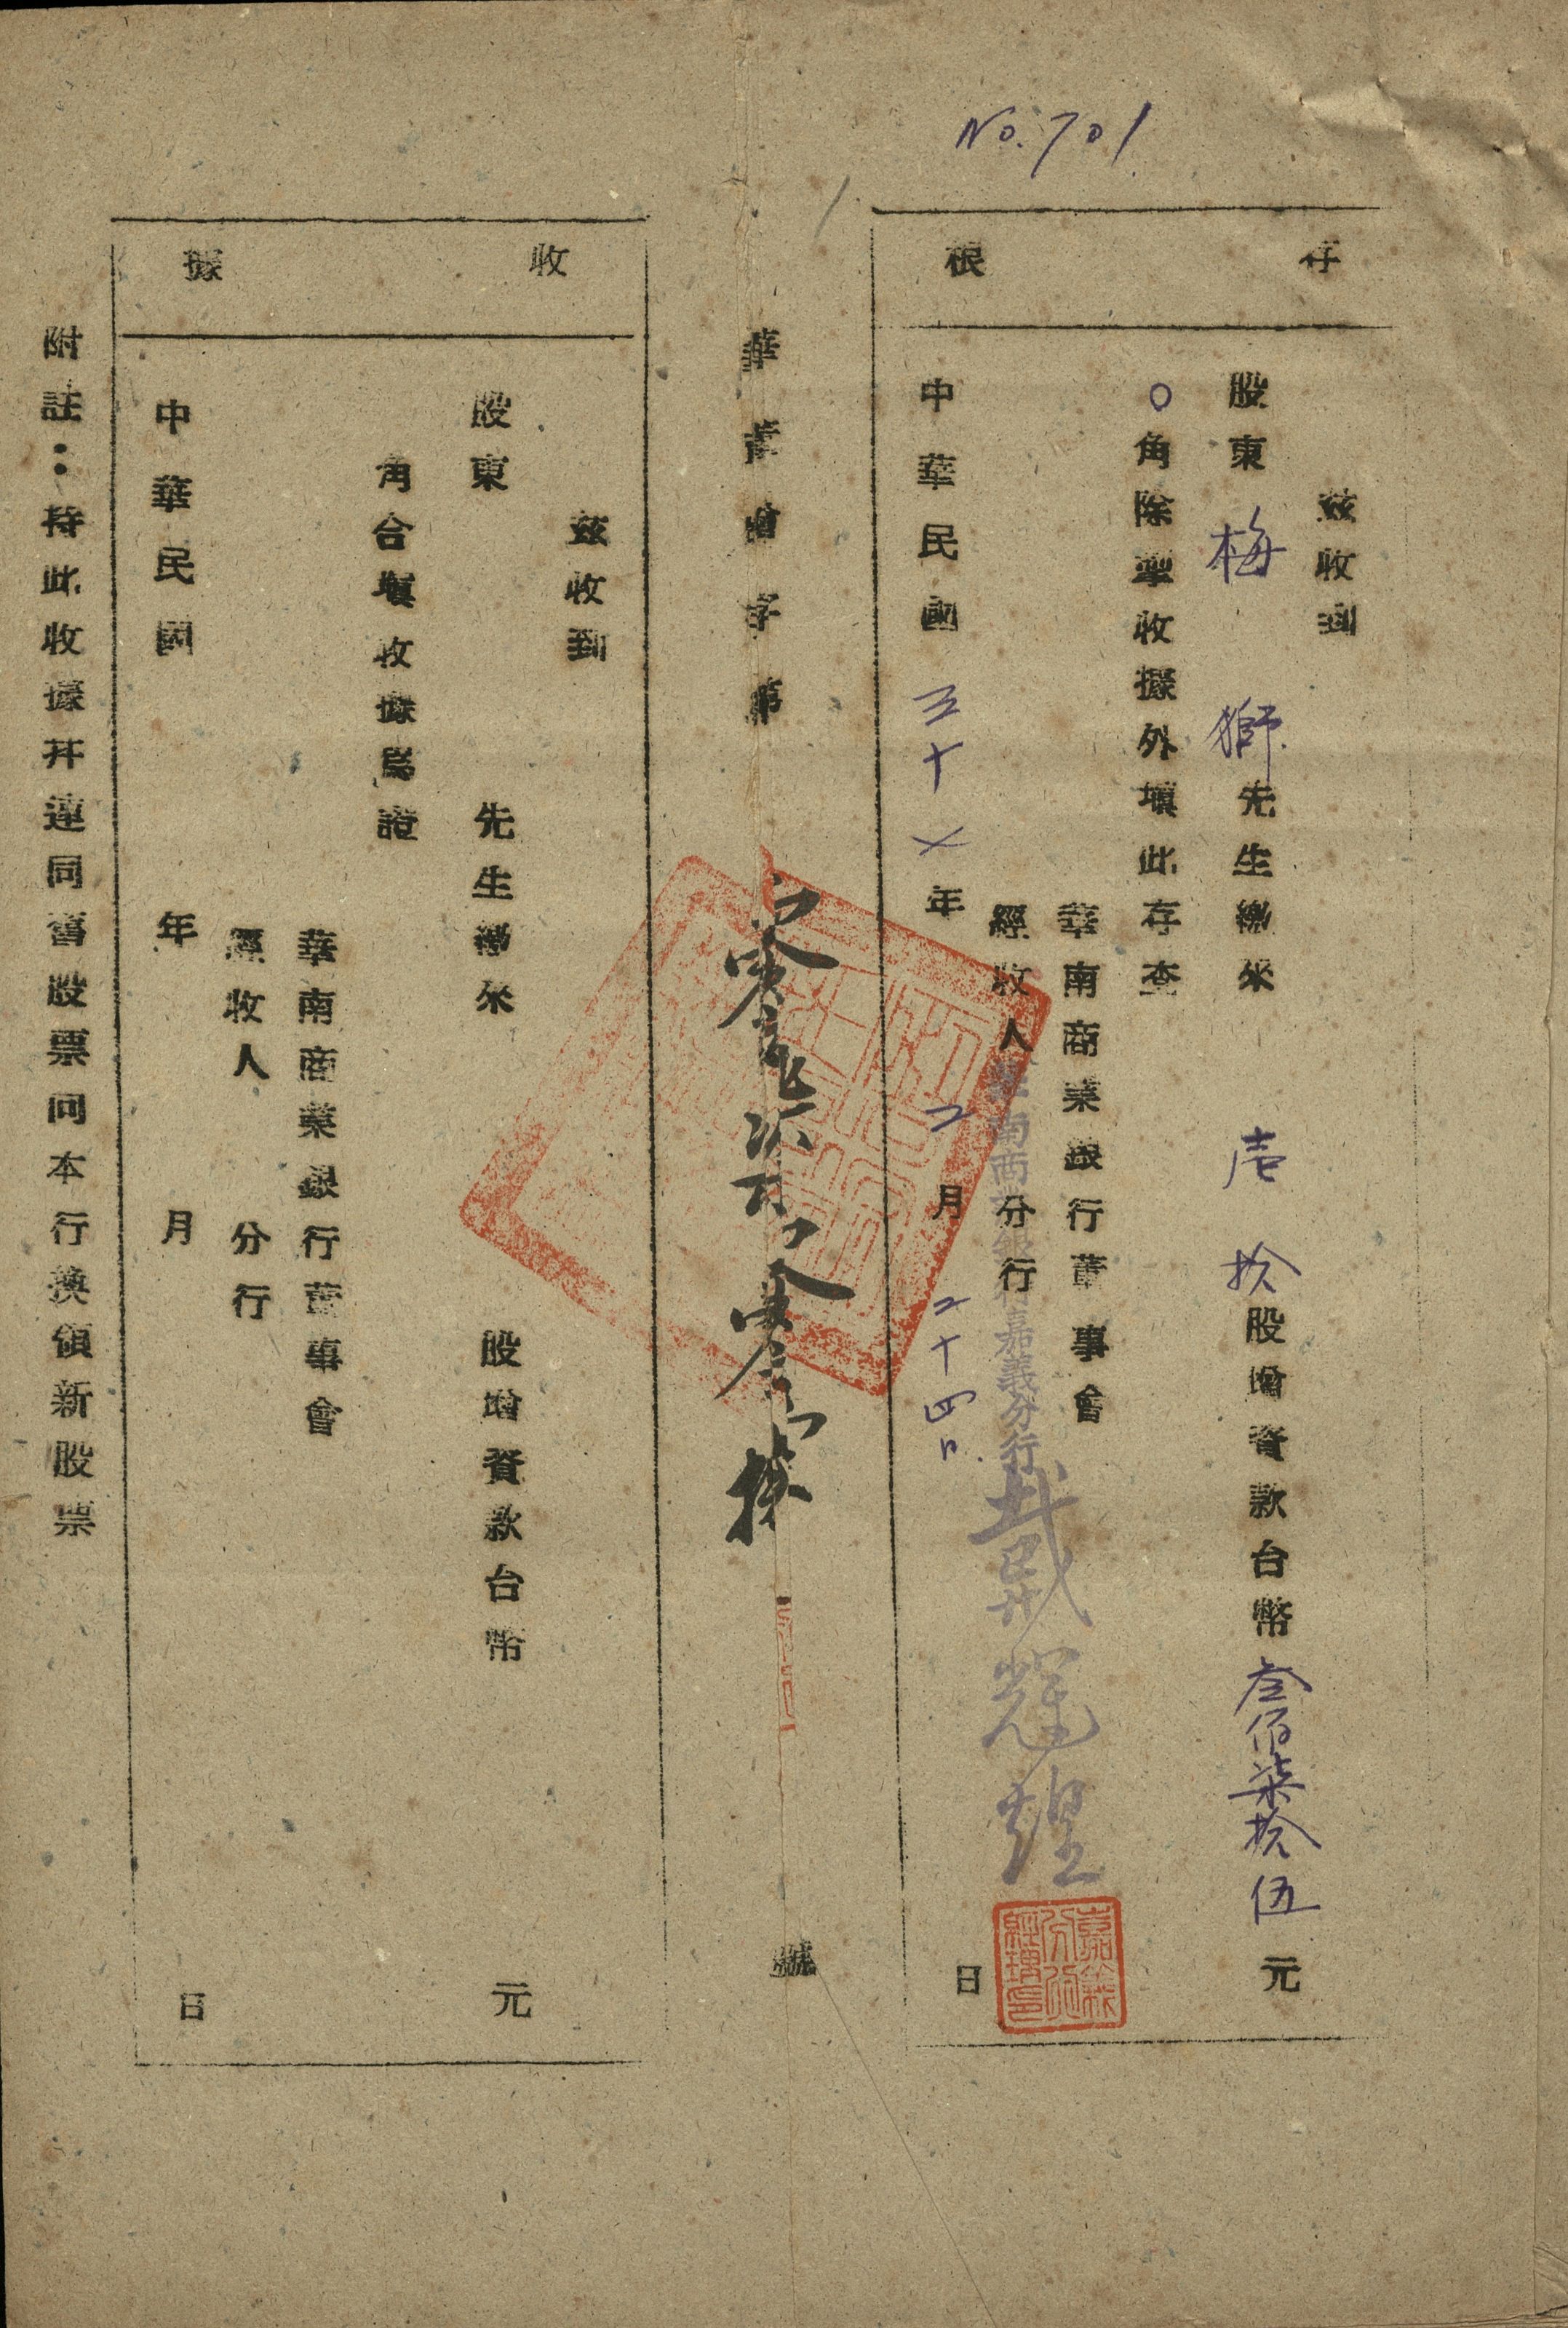 No. 701
存根
茲收到
股東 梅 獅 先生繳來 壱拾 股增資款台幣 叁佰柒拾伍 元
〇角除掣收據外填此存查
華南商業銀行董事會
經收人 分行
華南商業銀行嘉義分行
戴輝煌
嘉義分行經理印
中華民國 三十 年 二 月 二十四日 日
華 增字第 號
收據
茲收到
股東 先生繳來 股增資款台幣 元
角合填收據為證
華南商業銀行董事會
經收人 分行
中華民國 年 月 日
附註：持此收據并連同舊股票向本行換領新股票